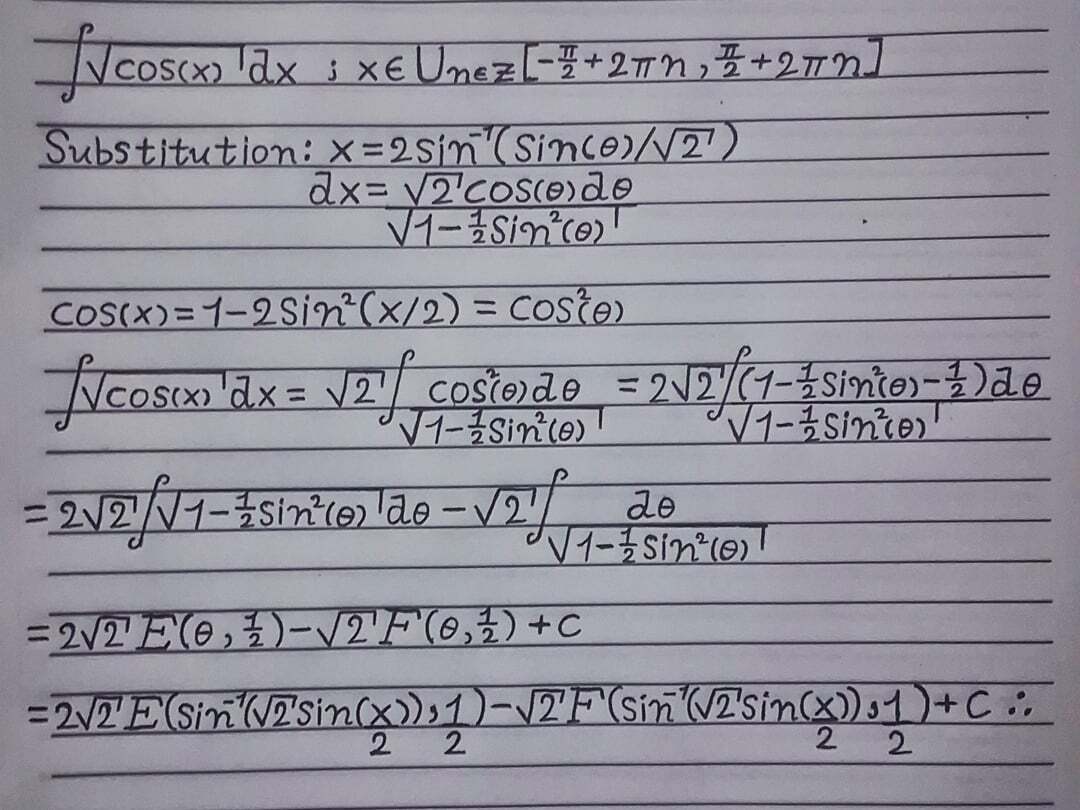 ∫√cos(x) dx ; x∈U_{n∈Z}[-π/2+2πn, π/2+2πn]
Substitution: x=2sin⁻¹(sin(θ)/√2)
dx= √2cos(θ)dθ
√1-½sin²(θ)
cos(x)=1-2sin²(x/2)=cos²(θ)
∫√cos(x) dx = √2∫ cos²(θ)dθ = 2√2∫(1-½sin²(θ)-½)dθ
√1-½sin²(θ) √1-½sin²(θ)
=2√2∫√1-½sin²(θ) dθ-√2∫ dθ
√1-½sin²(θ)
=2√2E(θ,½)-√2F(θ,½)+C
=2√2E(sin⁻¹(√2sin(x/2)),1/2)-√2F(sin⁻¹(√2sin(x/2)),1/2)+C ∴